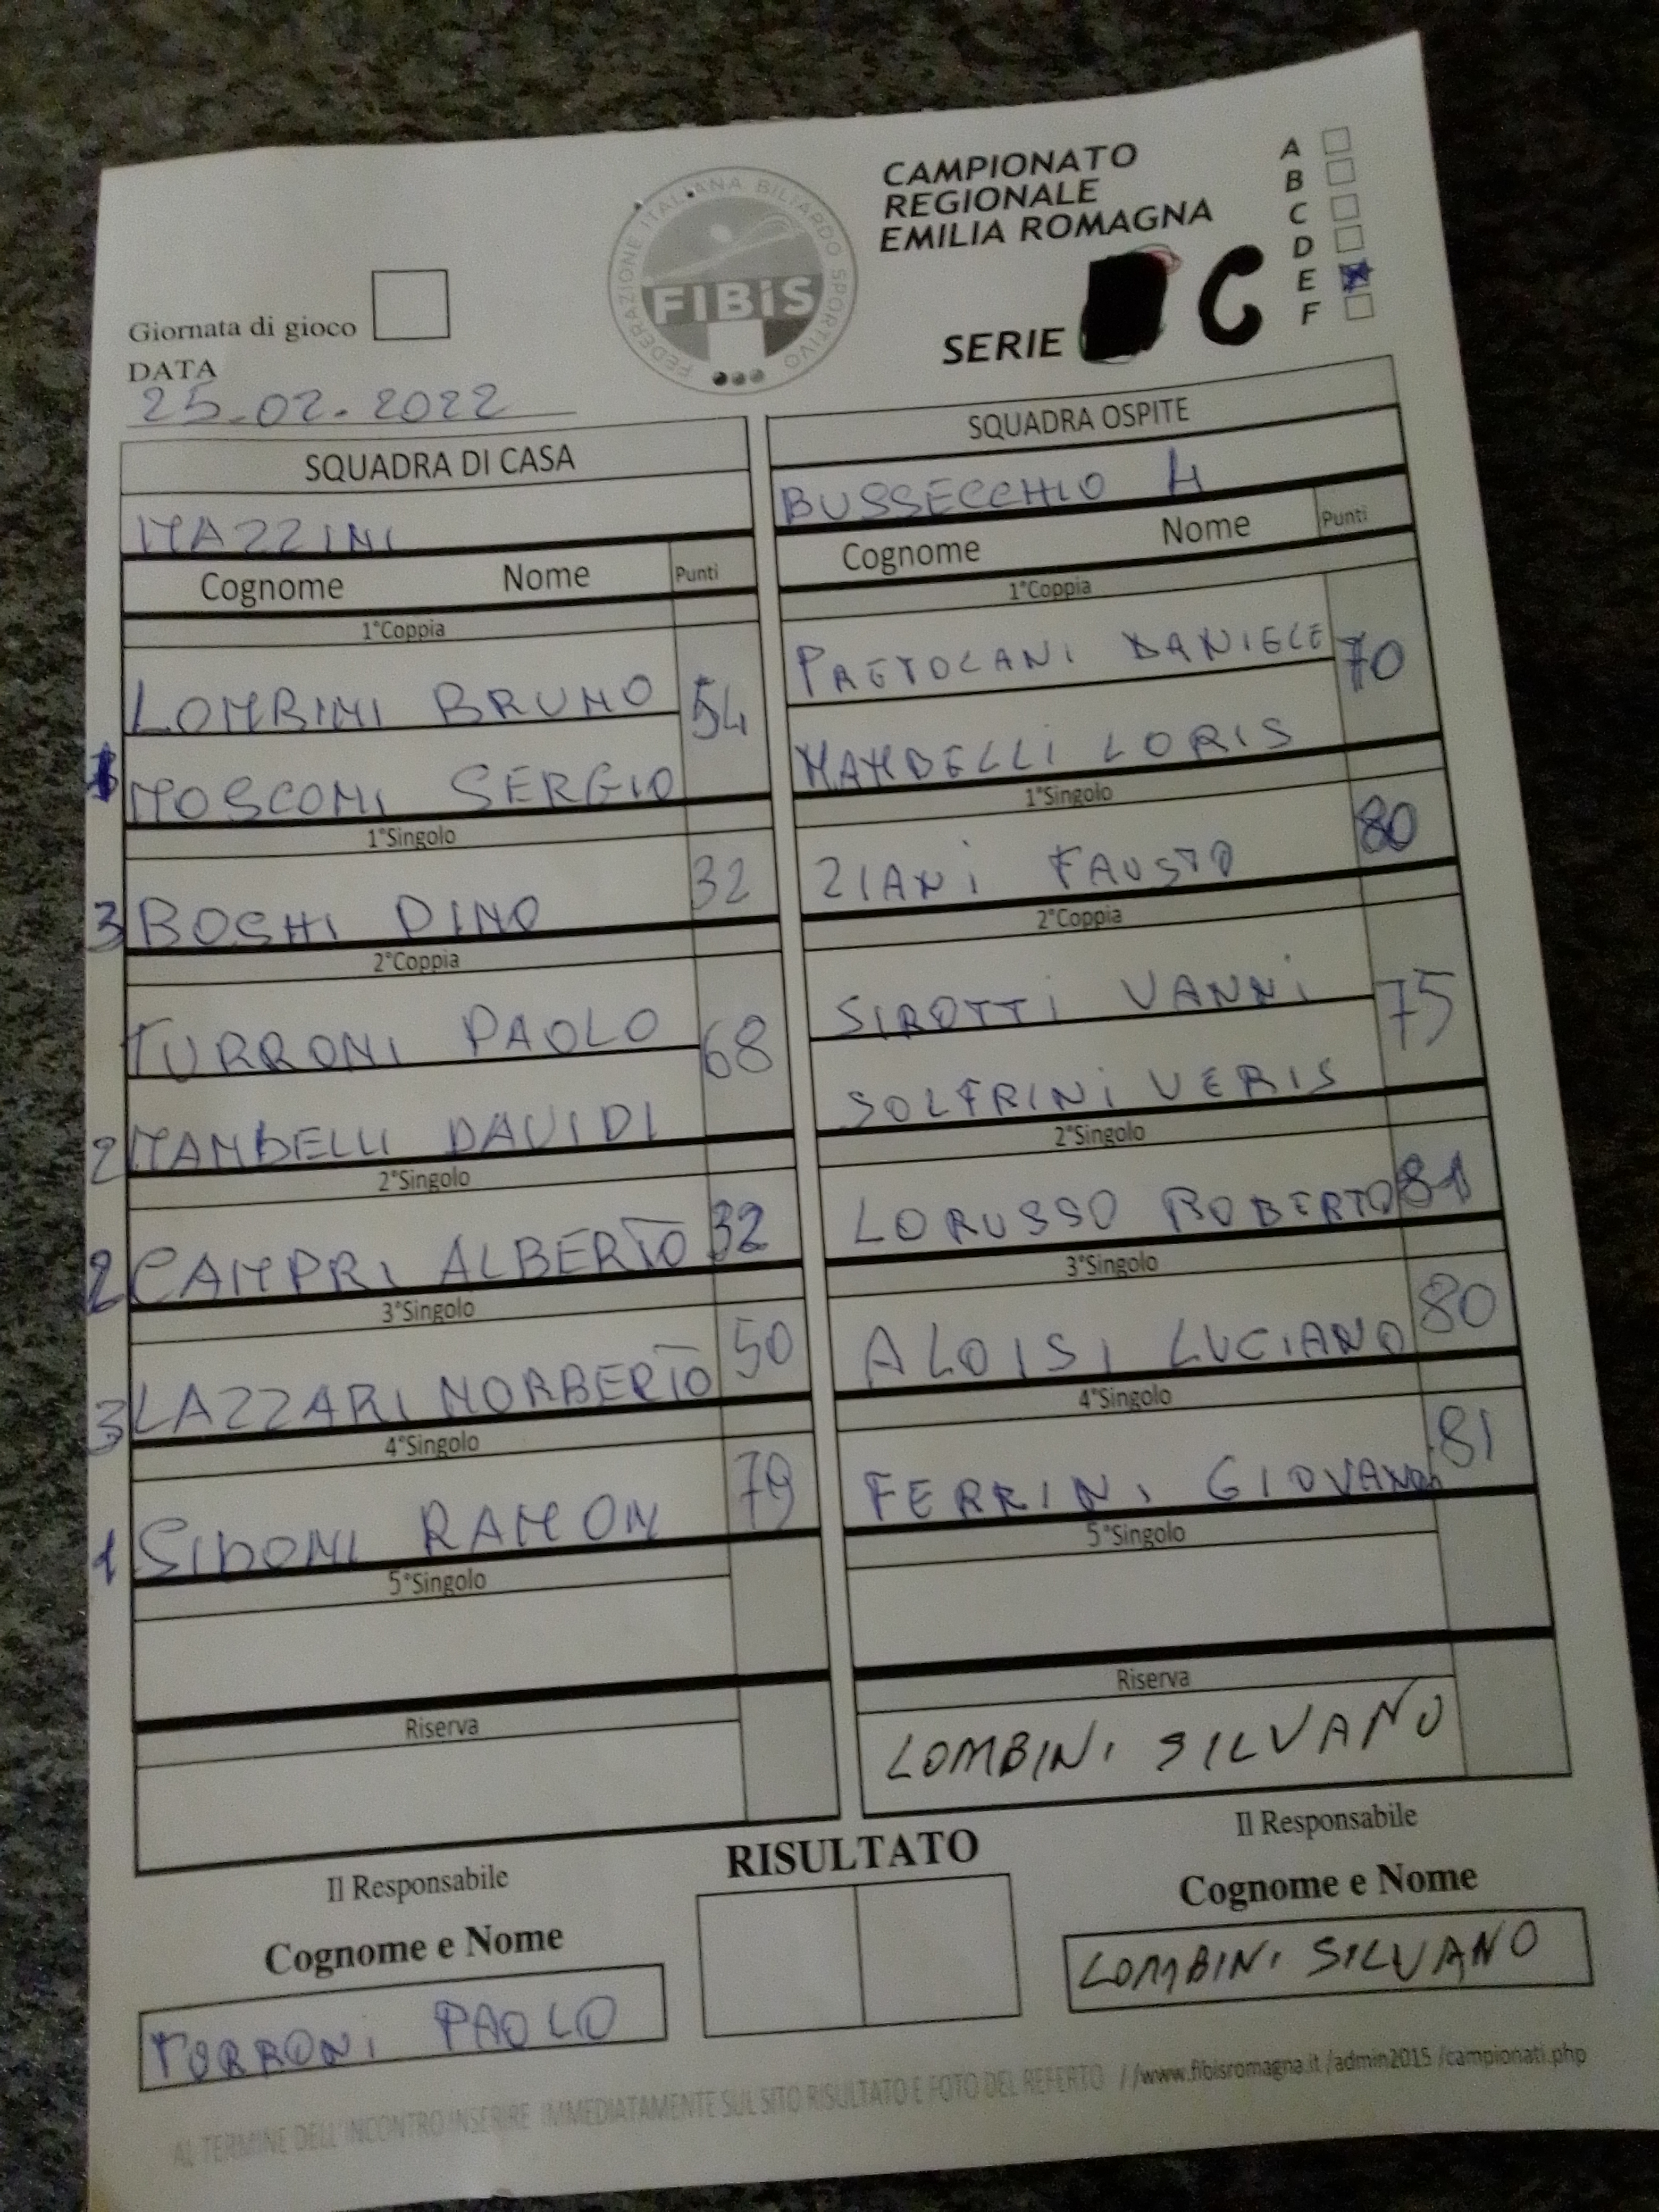 CAMPIONATO
REGIONALE
EMILIA ROMAGNA
SERIE C
A
B
C
D
E
F
FEDERAZIONE ITALIANA BILIARDO SPORTIVO
FIBiS
Giornata di gioco
DATA
25-02-2022
SQUADRA DI CASA
MAZZINI
Cognome Nome Punti
1°Coppia
LOMBINI BRUNO 54
MOSCONI SERGIO
1°Singolo
3 BOSHI DINO 32
2°Coppia
TURRONI PAOLO 68
2 MAMBELLI DAVIDI
2°Singolo
2 CAMPRI ALBERTO 32
3°Singolo
3 LAZZARI NORBERTO 50
4°Singolo
1 SIDONI RAMON 79
5°Singolo
Riserva
SQUADRA OSPITE
BUSSECCHIO 4
Cognome Nome Punti
1°Coppia
PRETOLANI DANIELE 70
MAMBELLI LORIS
1°Singolo
ZIANI FAUSTO 80
2°Coppia
SIROTTI VANNI 75
SOLFRINI VERIS
2°Singolo
LORUSSO ROBERTO 81
3°Singolo
ALOISI LUCIANO 80
4°Singolo
FERRINI GIOVANNI 81
5°Singolo
Riserva
LOMBINI SILVANO
Il Responsabile
Cognome e Nome
TURRONI PAOLO
RISULTATO
Il Responsabile
Cognome e Nome
LOMBINI SILVANO
AL TERMINE DELL'INCONTRO INSERIRE IMMEDIATAMENTE SUL SITO RISULTATO E FOTO DEL REFERTO //www.fibisromagna.it/admin2015/campionati.php